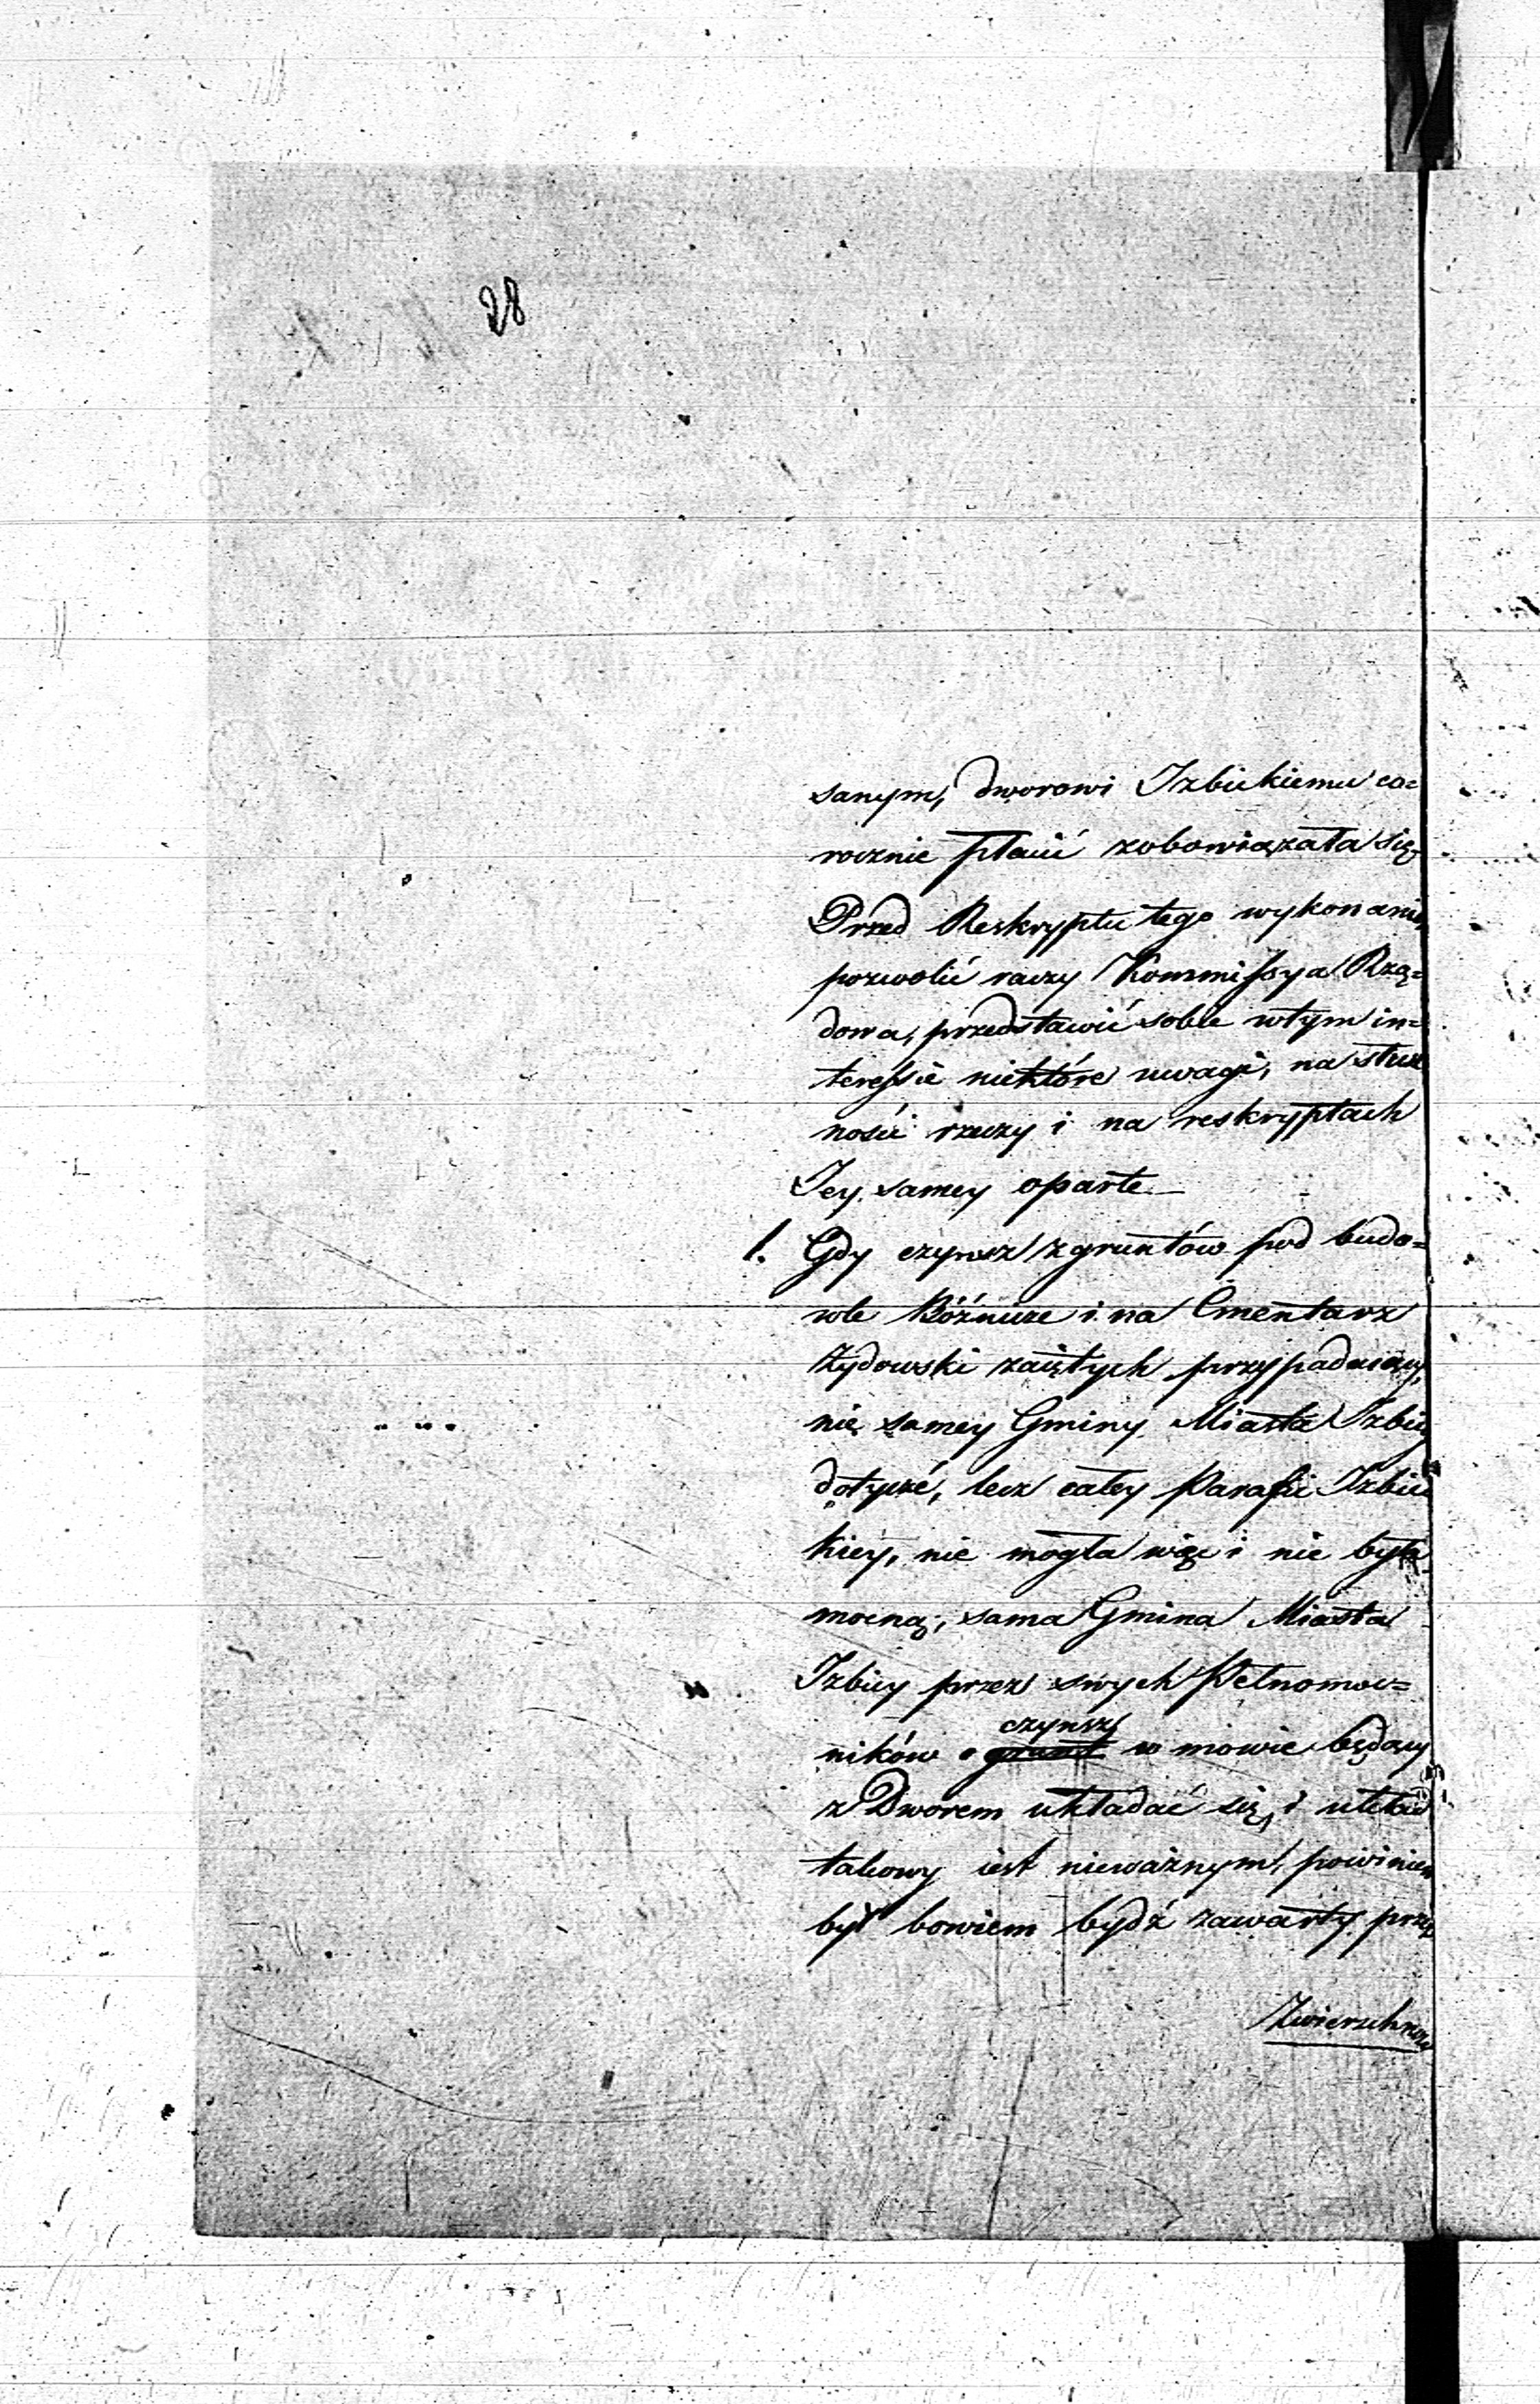 28
sanym, dworowi Izbickiemu co=
rocznie płacić zobowiązała się
Przed Reskryptu tego wykonanie,
pozwolić raczy Kommissya Rzą=
dowa, przedstawić sobie w tym in=
teressie niektóre uwagi, na słusz
ności rzeczy i na reskryptach
Jey samey oparte
1. Gdy czynsz z gruntów pod budo=
wle Bóżnicze i na Cmentarz
żydowski zaiętych przypadaiący,
nie samey Gminy Miasta Izbicy
dotycze, lecz całey Parafii Izbic
kiey, nie mogła więc i nie była
mocną, sama Gmina Miasta
Izbicy przez swych Pełnomoc=
czynsz
ników o grunt w mowie będący
z Dworem układać się, i układ
takowy iest nieważnym, powinien
był bowiem bydź zawarty przez
Zwierzchno